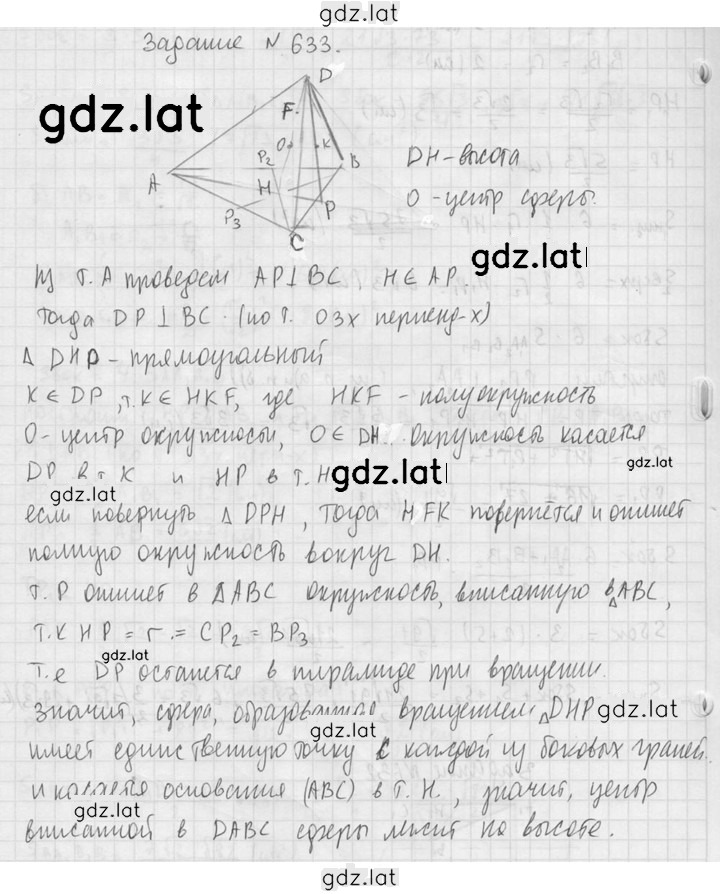 gdz.lat
Задание № 633.
gdz.lat
D
F.
O
K
P2
B
A
H
P
P3
C
DH-высота
O-центр сферы.
gdz.lat
Из т. A проведем AP⊥BC H∈AP
Тогда DP⊥BC (по т. О 3х перпенд-х)
Δ DHP - прямоугольный
K∈DP, т.K∈HKF, где HKF - полуокружность
O-центр окружности, O∈DH. Окружность касается
DP в т K и HP в т.H
gdz.lat
gdz.lat
gdz.lat
если повернуть Δ DPH, тогда HFK повернётся и опишет
полную окружность вокруг DH.
т. P опишет в ΔABC окружность, вписанную в ΔABC,
т.к HP = r = CP2 = BP3
gdz.lat
т.е DP останется в пирамиде при вращении.
Значит, сфера, образованная вращением ΔDHP
gdz.lat
имеет единственную точку с каждой из боковых граней.
и касается основания (ABC) в т. H., значит, центр
gdz.lat
вписанной в DABC сферы лежит на высоте.
gdz.lat